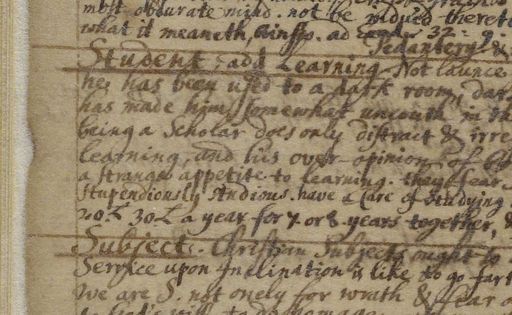 most obdurate mind. not be reduced thereto
what it meaneth,
Pedantery &
Student, add Learning. Not launce
he, has been used to a dark room,
has made him somewhat uncouth in th
being a Scholar does only distract & irre
learning, and his over-opinion of
a strange appetite to learning. they fear
stupendiously studious. have a care of studying
20£ 30£ a year for 7 or 8 years together, &
Subject. Christian Subjects ought to
Service upon Inclination is like to go fart
We are S. not onely for wrath & fear o